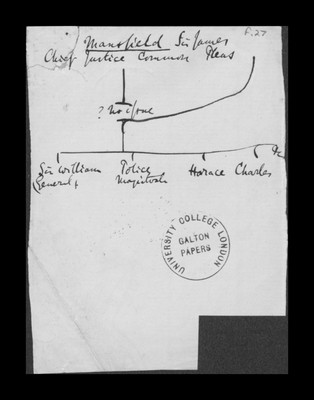 Mansfield Sir James
F.27
Chief Justice Common Pleas
? No issue
&c
Sir William
General
Police
Magistrate
Horace
Charles
UNIVERSITY COLLEGE LONDON
GALTON
PAPERS